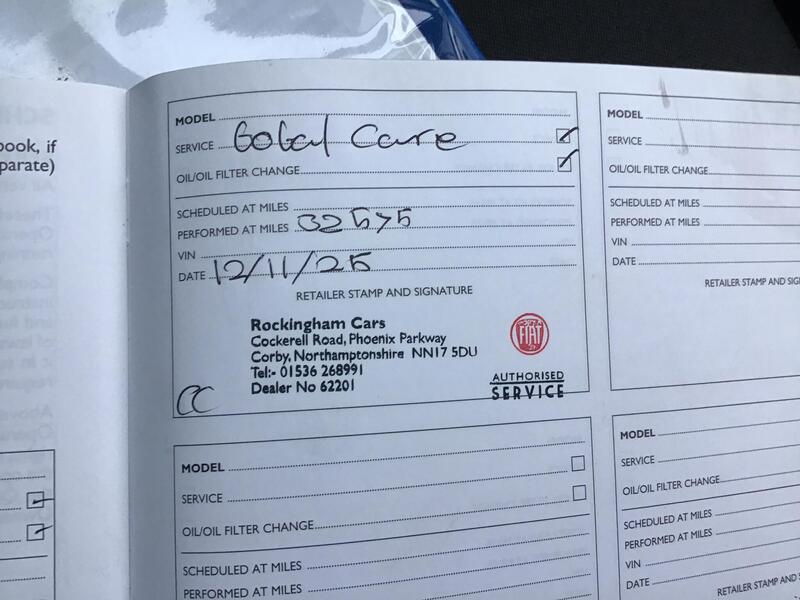 ook, if
parate)
MODEL
SERVICE Gobal Care
OIL/OIL FILTER CHANGE
SCHEDULED AT MILES
PERFORMED AT MILES 32575
VIN
DATE 12/11/25
RETAILER STAMP AND SIGNATURE
Rockingham Cars
Cockerell Road, Phoenix Parkway
Corby, Northamptonshire NN17 5DU
Tel:- 01536 268991
Dealer No 62201
CC
FIAT
AUTHORISED
SERVICE
MODEL
SERVICE
OIL/OIL FILTER CHANGE
SCHEDULED AT MILES
PERFORMED AT MILES
VIN
DATE
RETAILER STAMP AND SIGNA
MODEL
SERVICE
OIL/OIL FILTER CHANGE
SCHEDULED AT MILES
PERFORMED AT MILES
MODEL
SERVICE
OIL/OIL FILTER CHANGE
SCHEDULED AT MILES
PERFORMED AT MILES
VIN
DATE
RETAILER STAMP AND